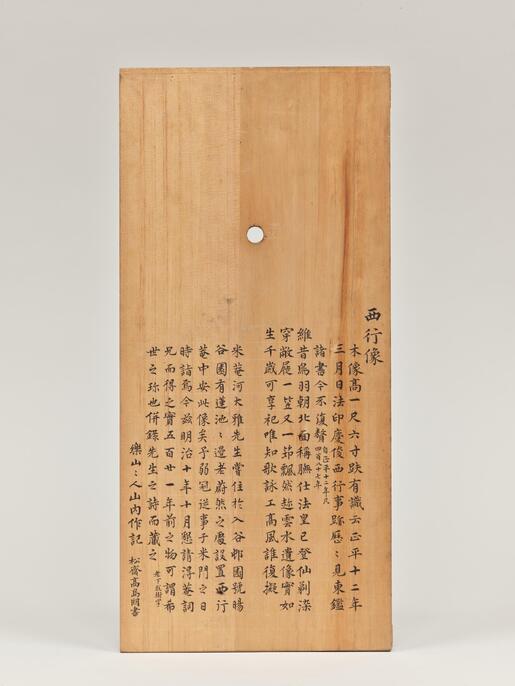 西行像
木像高一尺六寸趺有識云正平十二年
三月日法印慶俊西行事跡歴〻見東鑑
諸書今不復贅自正平十二年至四百八十七年
維昔為羽朝北面稱臕仕法皇已登仙剃染
穿敝屐一笠又一笻飄然趂雲水遺像實如
生千歳可享祀唯知歌詠工高風誰復擬
米菴河大雅先生嘗住於入谷邨園號暘
谷園有蓮池〻邉老蔚然之處設置西行
菴中安此像矣予弱冠従事于米門之日
時詣焉今玆明治十年十月懇請得菴詞
兄而得之實五百廿一年前之物可謂希
世之珎也併録先生之詩而蔵之
老下敚樹字
樂山〻人山内作記
松齋高島明書